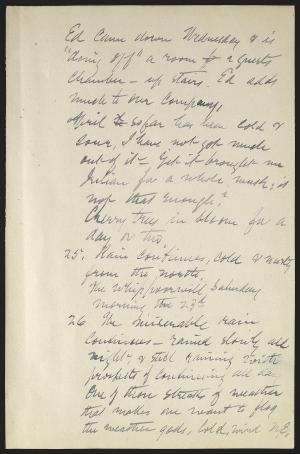 Ed came down Wednesday & is
"doing off" a room — a guest
chamber — up stairs. Ed adds
much to our company,
April so far has been cold &
sour, I have not got much
out of it — Yet it brought me
Julian for a whole week; is
not that enough?
Cherry trees in bloom for a
day or two.
25. Rain continues, cold & nasty
from the north.
The whippoorwill Saturday
morning the 23d
26 The miserable rain
continues — rained slowly all
night, & still raining with
prospects of continuing all day.
One of those streaks of weather
that makes one want to flog
the weather gods, cold, wind N.E.